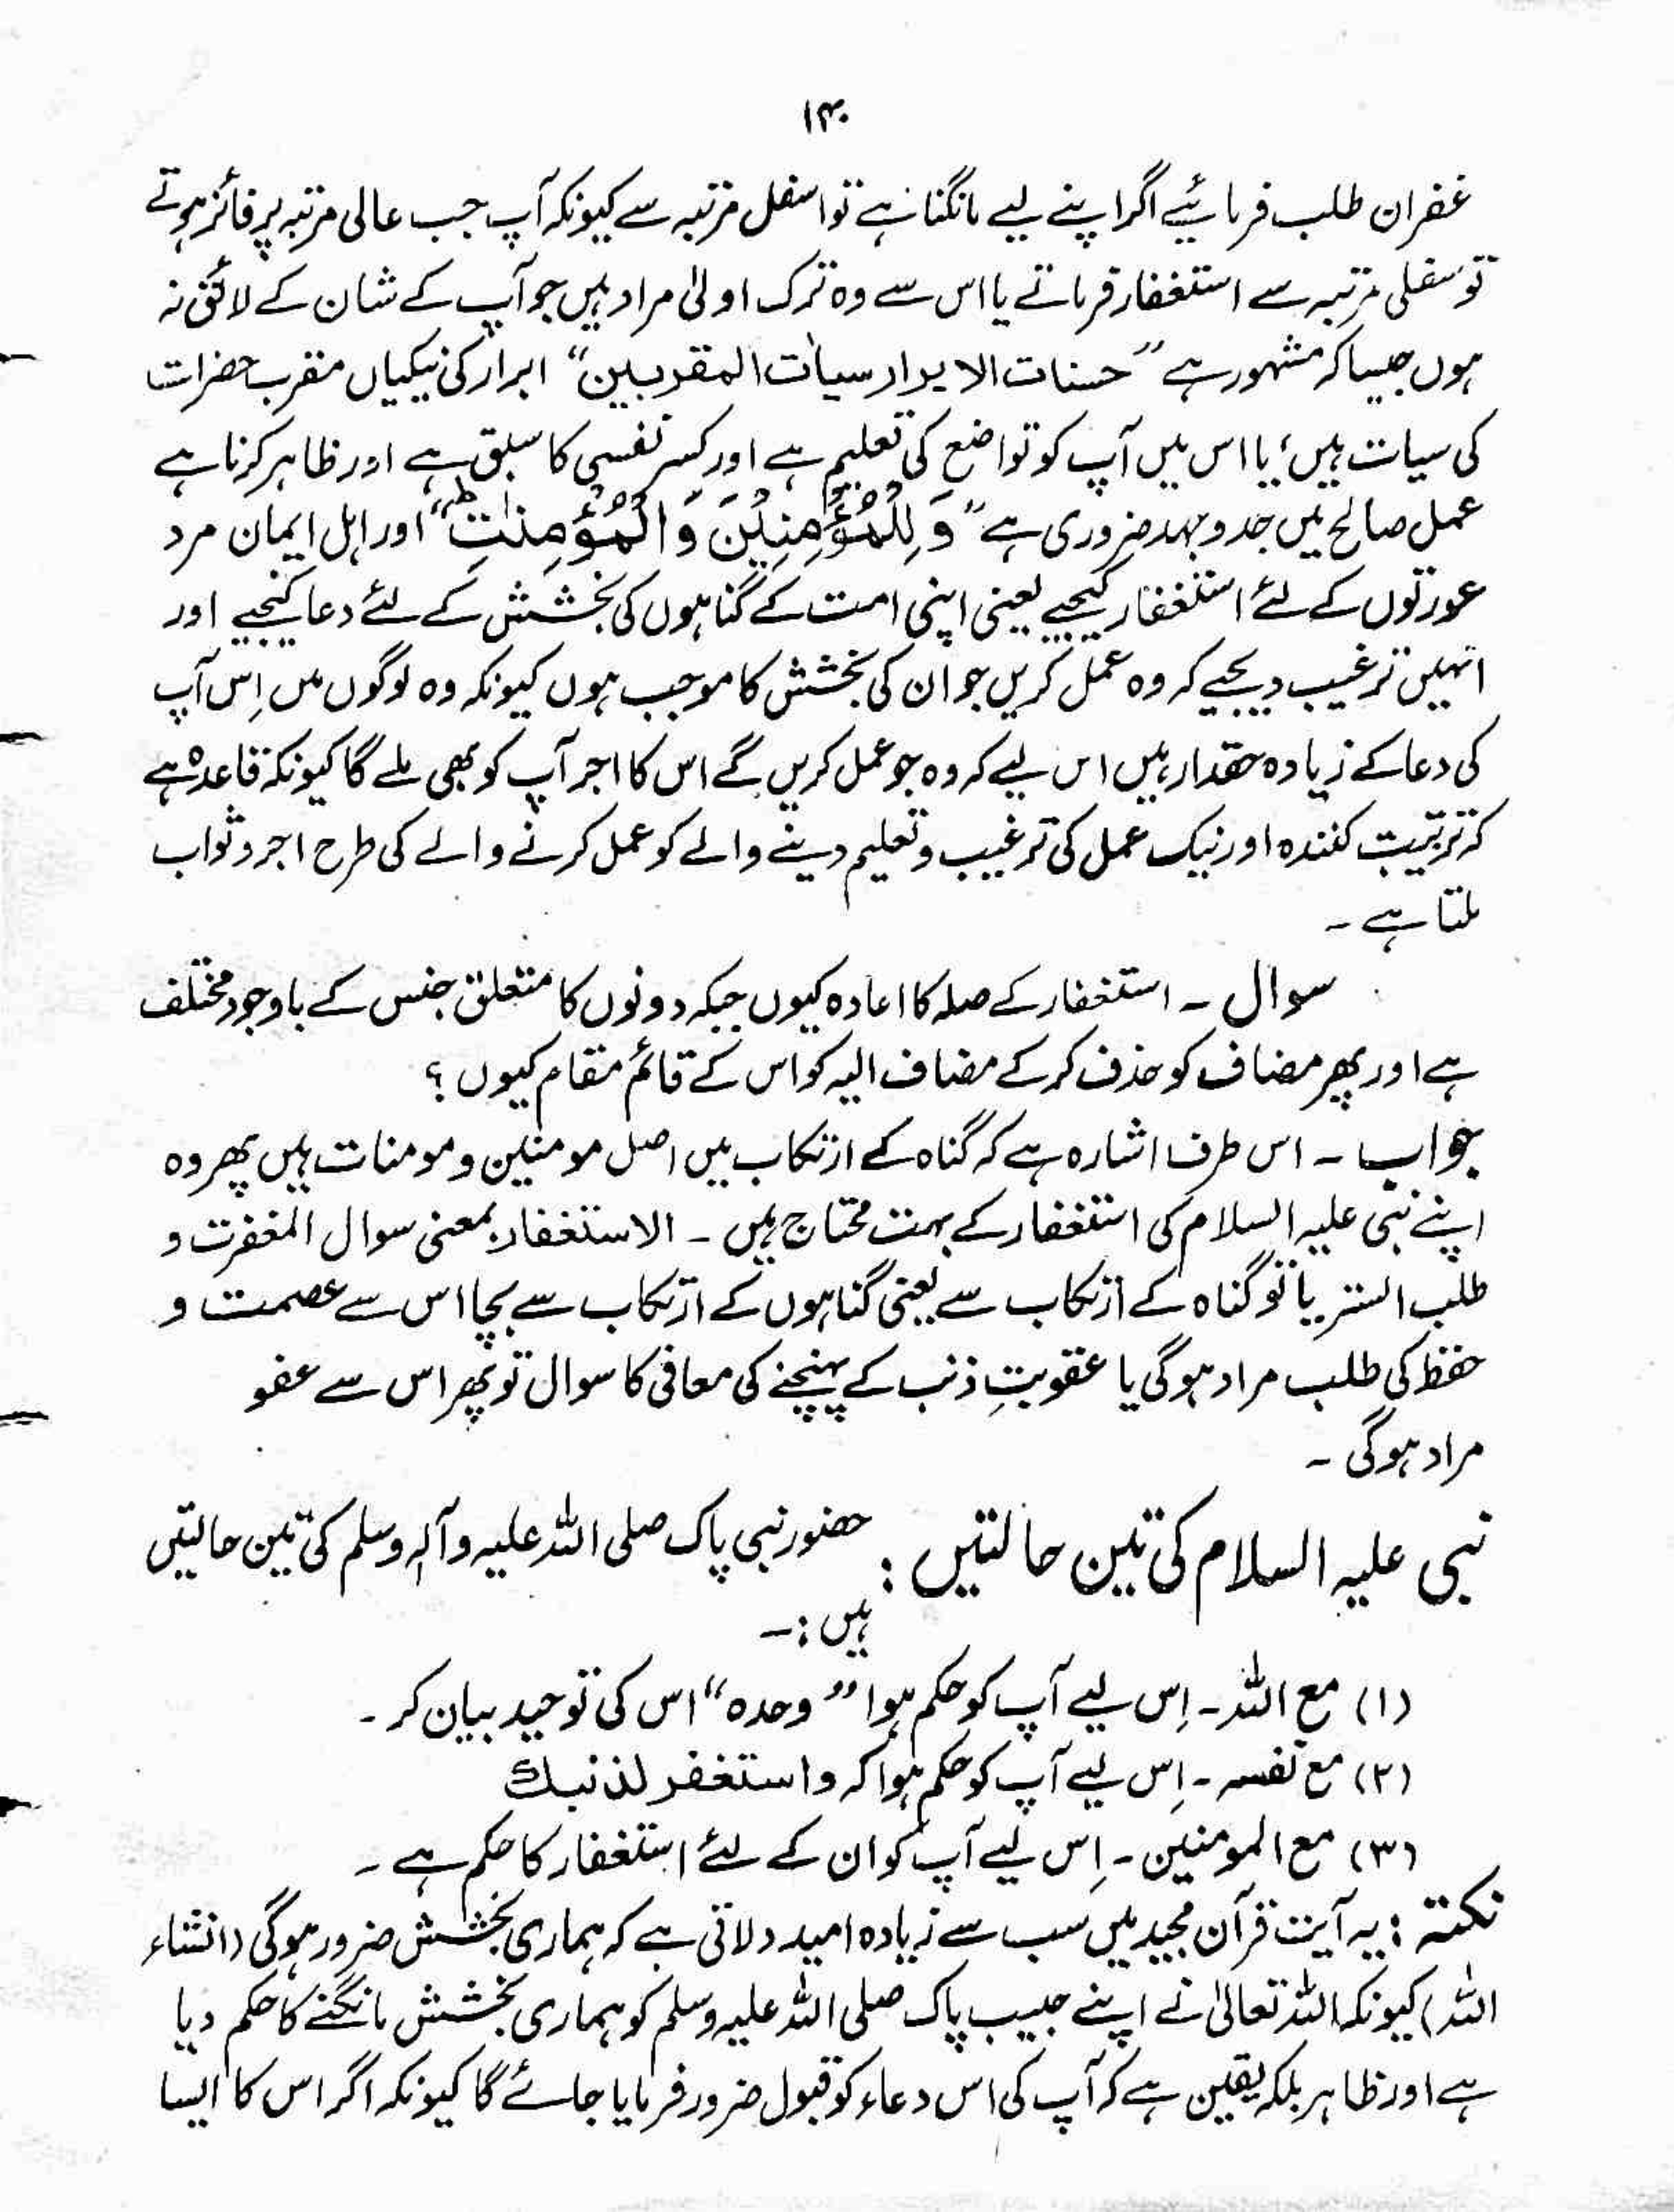 ۱۴۰
غفران طلب فرمائیے اگر اپنے لیے مانگنا ہے تو اسفل مرتبہ سے کیونکہ آپ جب عالی مرتبہ پر فائز ہوتے
تو سفلی مرتبہ سے استغفار فرماتے یا اس سے وہ ترک اولیٰ مراد ہیں جو آپ کے شان کے لائق نہ
ہوں جیسا کہ مشہور ہے ”حسنات الابرار سیاٰت المقربین“ ابرار کی نیکیاں مقرب حضرات
کی سیات ہیں، یا اس میں آپ کو تواضع کی تعلیم ہے اور کسر نفسی کا سبق ہے اور ظاہر کرنا ہے
عمل صالح میں جد و جہد ضروری ہے ”وَلِلْمُؤْمِنِیْنَ وَالْمُؤْمِنٰتِؕ“ اور اہل ایمان مرد
عورتوں کے لئے استغفار کیجیے یعنی اپنی امت کے گناہوں کی بخشش کے لئے دعا کیجیے اور
انہیں ترغیب دیجیے کہ وہ عمل کریں جو ان کی بخشش کا موجب ہوں کیونکہ وہ لوگوں میں اِس آپ
کی دعا کے زیادہ حقدار ہیں اس لیے کہ وہ جو عمل کریں گے اس کا اجر آپ کو بھی ملے گا کیونکہ قاعدہ ہے
کہ تربیت کنندہ اور نیک عمل کی ترغیب و تعلیم دینے والے کو عمل کرنے والے کی طرح اجر و ثواب
ملتا ہے ۔
سوال ۔ استغفار کے صلہ کا اعادہ کیوں جبکہ دونوں کا متعلق جنس کے باوجود مختلف
ہے اور پھر مضاف کو حذف کر کے مضاف الیہ کو اس کے قائم مقام کیوں ؟
جواب ۔ اس طرف اشارہ ہے کہ گناہ کے ارتکاب میں اصل مومنین و مومنات ہیں پھر وہ
اپنے نبی علیہ السلام کی استغفار کے بہت محتاج ہیں ۔ الاستغفار بمعنی سوال المغفرت و
طلب الستر یا تو گناہ کے ارتکاب سے یعنی گناہوں کے ارتکاب سے بچا اس سے عصمت و
حفظ کی طلب مراد ہوگی یا عقوبتِ ذنب کے پہنچنے کی معافی کا سوال تو پھر اس سے عفو
مراد ہوگی ۔
نبی علیہ السلام کی تین حالتیں : حضور نبی پاک صلی اللہ علیہ و آلہ وسلم کی تین حالتیں
ہیں :۔
(۱) مع اللہ ۔ اِس لیے آپ کو حکم ہوا ”وحدہ“ اس کی توحید بیان کر ۔
(۲) مع نفسہ ۔ اِس لیے آپ کو حکم ہوا کہ واستغفر لذنبك
(۳) مع المومنین ۔ اِس لیے آپ کو ان کے لئے استغفار کا حکم ہے ۔
نکتہ : یہ آیت قرآن مجید میں سب سے زیادہ امید دلاتی ہے کہ ہماری بخشش ضرور ہوگی (انشاء
اللہ) کیونکہ اللہ تعالیٰ نے اپنے حبیب پاک صلی اللہ علیہ وسلم کو ہماری بخشش مانگنے کا حکم دیا
ہے اور ظاہر بلکہ یقین ہے کہ آپ کی اس دعاء کو قبول ضرور فرمایا جائے گا کیونکہ اگر اس کا ایسا